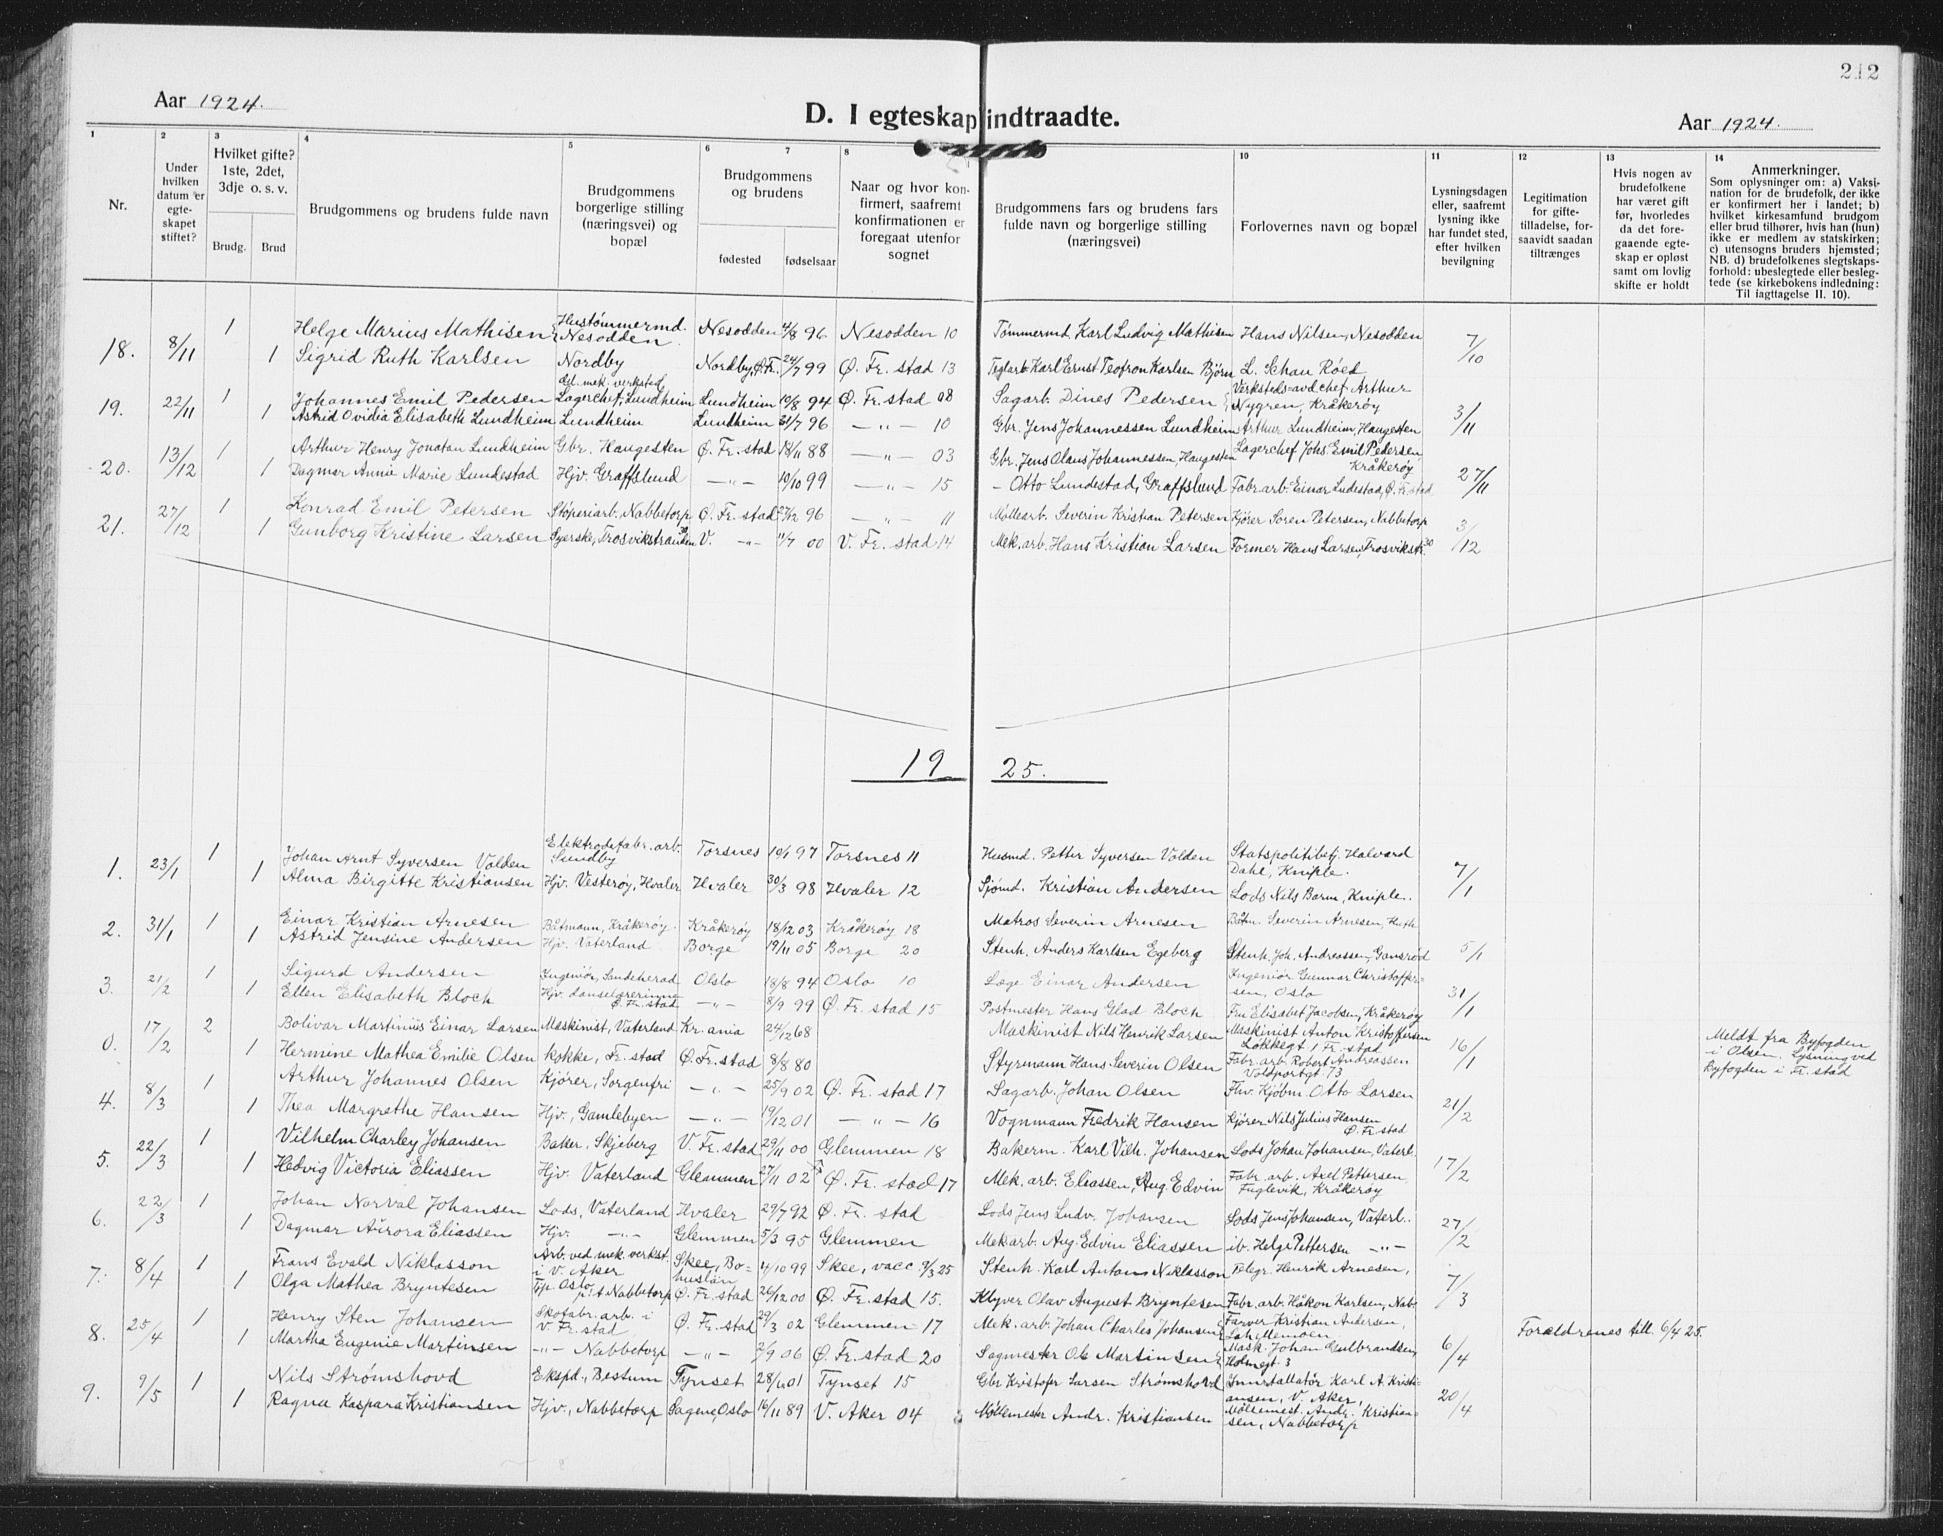 212
Aar 1924.
D. I egteskap indtraadte.
Aar 1924.
1 2 3 4 5 6 7 8 10 11 12 13 14
Nr.
Under hvilken datum er egteskapet stiftet?
Hvilket gifte? 1ste, 2det, 3dje o. s. v.
Brudg. Brud
Brudgommens og brudens fulde navn
Brudgommens borgerlige stilling (næringsvei) og bopæl
Brudgommens og brudens
fødested fødselsaar
Naar og hvor konfirmert, saafremt konfirmationen er foregaat utenfor sognet
Brudgommens fars og brudens fars fulde navn og borgerlige stilling (næringsvei)
Forlovernes navn og bopæl
Lysningsdagen eller, saafremt lysning ikke har fundet sted, efter hvilken bevilgning
Legitimation for giftetilladelse, forsaavidt saadan tiltrænges
Hvis nogen av brudefolkene har været gift før, hvorledes da det foregaaende egteskap er opløst samt om lovlig skifte er holdt
Anmerkninger.
Som oplysninger om: a) Vaksination for de brudefolk, der ikke er konfirmert her i landet; b) hvilket kirkesamfund brudgom eller brud tilhører, hvis han (hun) ikke er medlem av statskirken; c) utensogns bruders hjemsted; NB. d) brudefolkenes slegtskapsforhold: ubeslegtede eller beslegtede (se kirkebokens indledning: Til iagttagelse II. 10).
18. 8/11 1 Helge Marius Mathisen Hustømmermd. Nesodden Nesodden 4/8 96 Nesodden 10 Tømmermd. Karl Ludvig Mathisen Hans Nilsen, Nesodden 7/10
1 Sigrid Ruth Karlsen Nordby Nordby, Ø. Fr. 24/7 99 Ø. Fr. stad 13 Teglarb. Karl Ernst Teofron Karlsen Bjørn L. Schau Røed
19. 22/11 1 Johannes Emil Pedersen mek. verksted Lagerchef, Lundheim Lundheim 10/8 94 Ø. Fr. stad 08 Sagarb. Dines Pedersen Verksteds=avd.chef Arthur Nygren, Kråkerøy 3/11
1 Astrid Ovidia Elisabeth Lundheim Lundheim Lundheim 31/7 96 — " — 10 Gbr. Jens Johannessen Lundheim Arthur Lundheim, Haugesten
20. 13/12 1 Arthur Henry Jonatan Lundheim Gbr. Haugesten Ø. Fr. stad 18/11 88 — " — 03 Gbr. Jens Olaus Johannessen, Haugesten Lagerchef Johs. Emil Pedersen, Kråkerøy 27/11
1 Dagmar Annie Marie Lundestad Hjv. Graffslund — " — 10/10 99 — " — 15 - Otto Lundestad, Graffslund Fabr. arb. Einar Ludestad, Ø. Fr. stad
21. 27/12 1 Konrad Emil Petersen Støperiarb. Nabbetorp Ø. Fr. stad 27/12 96 — " — 11 Møllearb. Severin Kristian Petersen Kjører Soren Petersen, Nabbetorp 3/12
1 Gunborg Kristine Larsen Syerske, Trosvikstranden 30 V. — " — 11/7 00 V. Fr. stad 14 Mek. arb. Hans Kristian Larsen Former Hans Larsen, Trosvikstr. 30
1925.
1. 23/1 1 Johan Arnt Syversen Volden Elektrodefabr. arb. Sundby Torsnes 10/1 97 Torsnes 11 Husmd. Petter Syversen Volden Statspolitibetj. Halvard Dahl, Kniple. 7/1
1 Alma Birgitte Kristiansen Hjv. Vesterøy, Hvaler Hvaler 30/3 98 Hvaler 12 Sjømd. Kristian Andersen Lods Nils Barm, Kniple.
2. 31/1 1 Einar Kristian Arnesen Båtmann, Kråkerøy. Kråkerøy 18/12 03 Kråkerøy 18 Matros Severin Arnesen Båtm. Severin Arnesen, Huth 5/1
1 Astrid Jensine Andersen Hjv. Vaterland Borge 19/11 05 Borge 20 Stenh. Anders Karlsen Egeberg Stenh. Joh. Andreassen, Gansrød
3. 21/2 1 Sigurd Andersen Ingeniør, Sandeherad Oslo 18/8 94 Oslo 10 Læge Einar Andersen Ingeniør Gunnar Christoffersen, Oslo 31/1
1 Ellen Elisabeth Bloch Hjv. danselærerinne Ø. Fr. stad — " — 8/9 99 Ø. Fr. stad 15 Postmester Hans Glad Bloch Fru Elisabet Jacobsen, Kråkerøy
0. 17/2 2 Bolivar Martinius Einar Larsen Maskinist, Vaterland Kr. ania 24/12 68 Maskinist Nils Henrik Larsen Maskinist Anton Kristoffersen Løkkegt 1 Fr. stad 16/1 Meldt fra Byfogden i Olsen. Lysning ved Byfogden i Fr. stad
1 Hermine Mathea Emilie Olsen Kokke, Fr. stad Ø. Fr. stad 8/8 80 Styrmann Hans Severin Olsen Fabr. arb. Robert Andreassen Voldportgt. 73
4. 8/3 1 Arthur Johannes Olsen Kjører, Sorgenfri — " — 25/9 02 Ø. Fr. stad 17 Sagarb. Johan Olsen Fhv. Kjøbm. Otto Larsen 21/2
1 Thea Margrethe Hansen Hjv., Gamlebyen — " — 19/12 01 — " — 16 Vognmann Fredrik Hansen Kjører Nils Julius Hansen Ø. Fr. stad
5. 22/3 1 Vilhelm Charley Johansen Baker, Skjeberg V. Fr. stad 29/11 00 Glemmen 18 Bakerm. Karl Vilh. Johansen Lods Johan Johansen, Vaterl. 17/2
1 Hedvig Victoria Eliassen Hjv. Vaterland Glemmen 27/11 02 Ø. Fr. stad 17 Mek. arb. Eliassen, Aug Edvin Fabr. arb. Axel Pettersen, Fuglevik, Kråkerøy
6. 22/3 1 Johan Norval Johansen Lods, Vaterland Hvaler 29/7 92 Ø. Fr. stad Lods Jens Ludv. Johansen Lods Jens Johansen, Vaterl. 27/2
1 Dagmar Aurora Eliassen Hjv. — " — Glemmen 5/3 95 Glemmen Mek arb. Aug. Edvin Eliassen ib. Helge Pettersen — " —
7. 8/4 1 Frans Evald Niklasson Arb. ved mek. verkst. i V. Aker Skee, Bohuslän 4/10 99 Skee, vacc 9/3 25 Stenh. Karl Anton Niklasson Telegr. Henrik Arnesen, 7/3
1 Olga Mathea Bryntesen Tjp. Oslo p.t. Nabbetorp Ø. Fr. stad 26/12 00 Ø. Fr. stad 15. Klyver Olav August Bryntesen Fabr. arb. Håkon Karlsen, Nabb.
8. 25/4 1 Henry Sten Johansen Skofabr. arb. i V. Fr. stad Ø. Fr. stad 29/3 02 Glemmen 17 Mek. arb. Johan Charles Johansen Farver Kristian Andersen, 6/4 Forældrenes till. 6/4 25.
1 Martha Eugenie Martinsen — " — Nabbetorp — " — 2/9 06 Ø. Fr. stad 20 Sagmester Ole Martinsen Mask. Johan Gulbrandsen, Holmegt. 3
9. 9/5 1 Nils Strømshovd Ekspd., Bestum Tynset 28/1 01 Tynset 15 Gbr. Kristofer Larsen Strømshovd Innstallatør Karl A. Kristiansen, V. Aker 20/4
1 Ragna Kaspara Kristiansen Hjv., Nabbetorp Sagene, Oslo 16/11 89 V. Aker 04 Møllemester Andr. Kristiansen Møllemest. Andr. Kristiansen, Nabbetorp